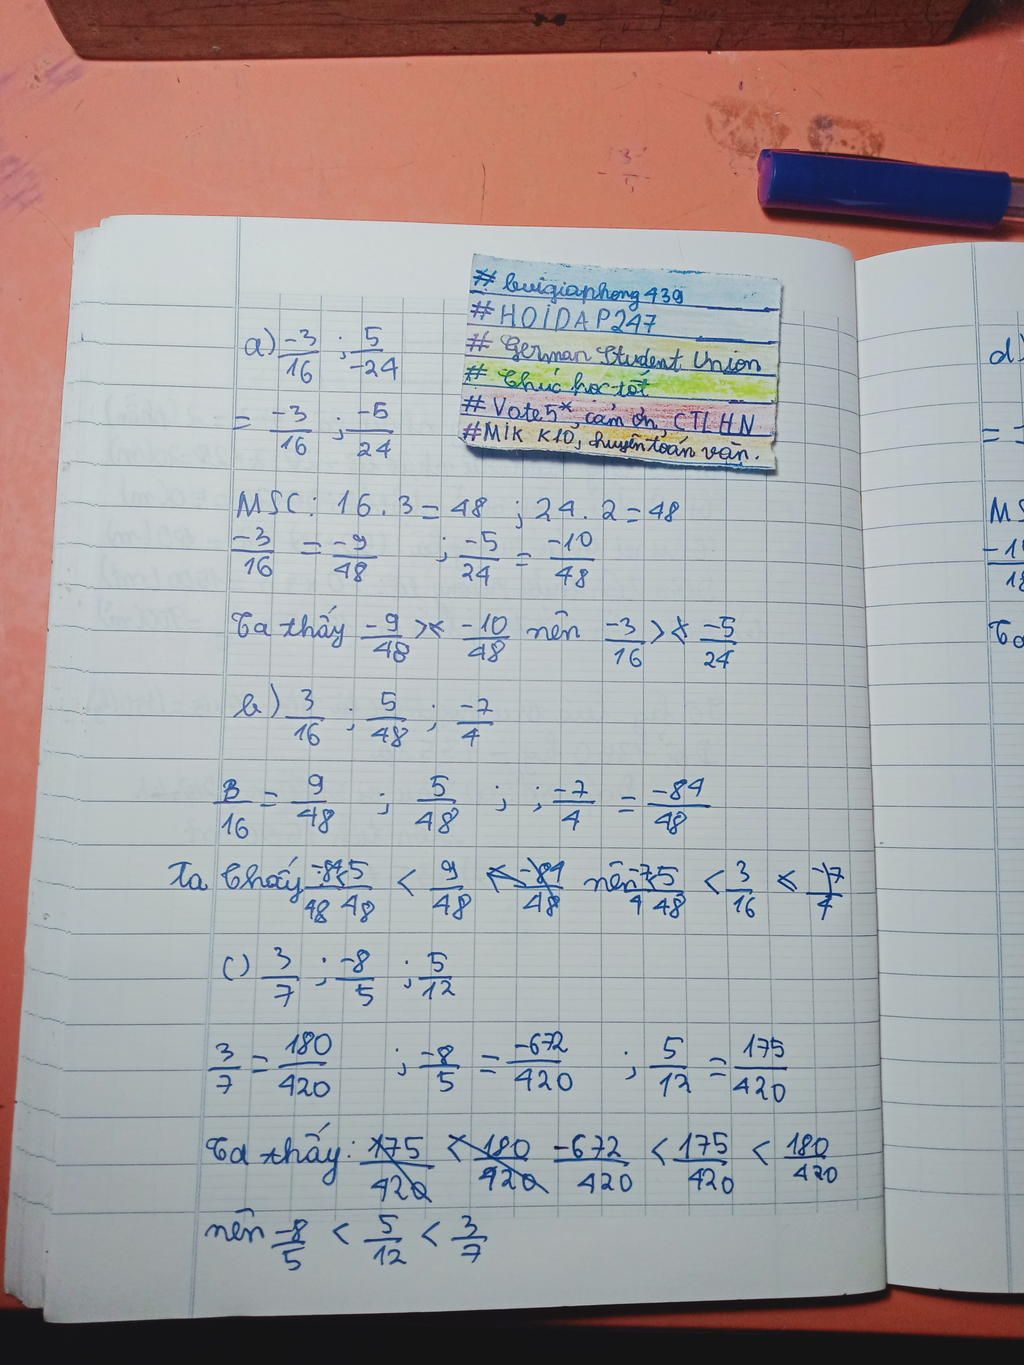 # buigiaphong439
# HOIDAP247
# German Student Union
# Chúc học tốt
# Vote 5*, cảm ơn, CTLHN
#MIK K10, chuyên toán văn.
a) -3/16 ; 5/-24
= -3/16 ; -5/24
MSC: 16 . 3 = 48 ; 24 . 2 = 48
-3/16 = -9/48 ; -5/24 = -10/48
Ta thấy -9/48 > -10/48 nên -3/16 > -5/24
b) 3/16 ; 5/48 ; -7/4
3/16 = 9/48 ; 5/48 ; ; -7/4 = -84/48
Ta thấy -84/48 < 5/48 < 9/48 < -84/48 nên -7/4 < 5/48 < 3/16 < -7/4
c) 3/7 ; -8/5 ; 5/12
3/7 = 180/420 ; -8/5 = -672/420 ; 5/12 = 175/420
Ta thấy: 175/420 < 180/420 -672/420 < 175/420 < 180/420
nên -8/5 < 5/12 < 3/7
d)
=
MS
-1
18
Ta